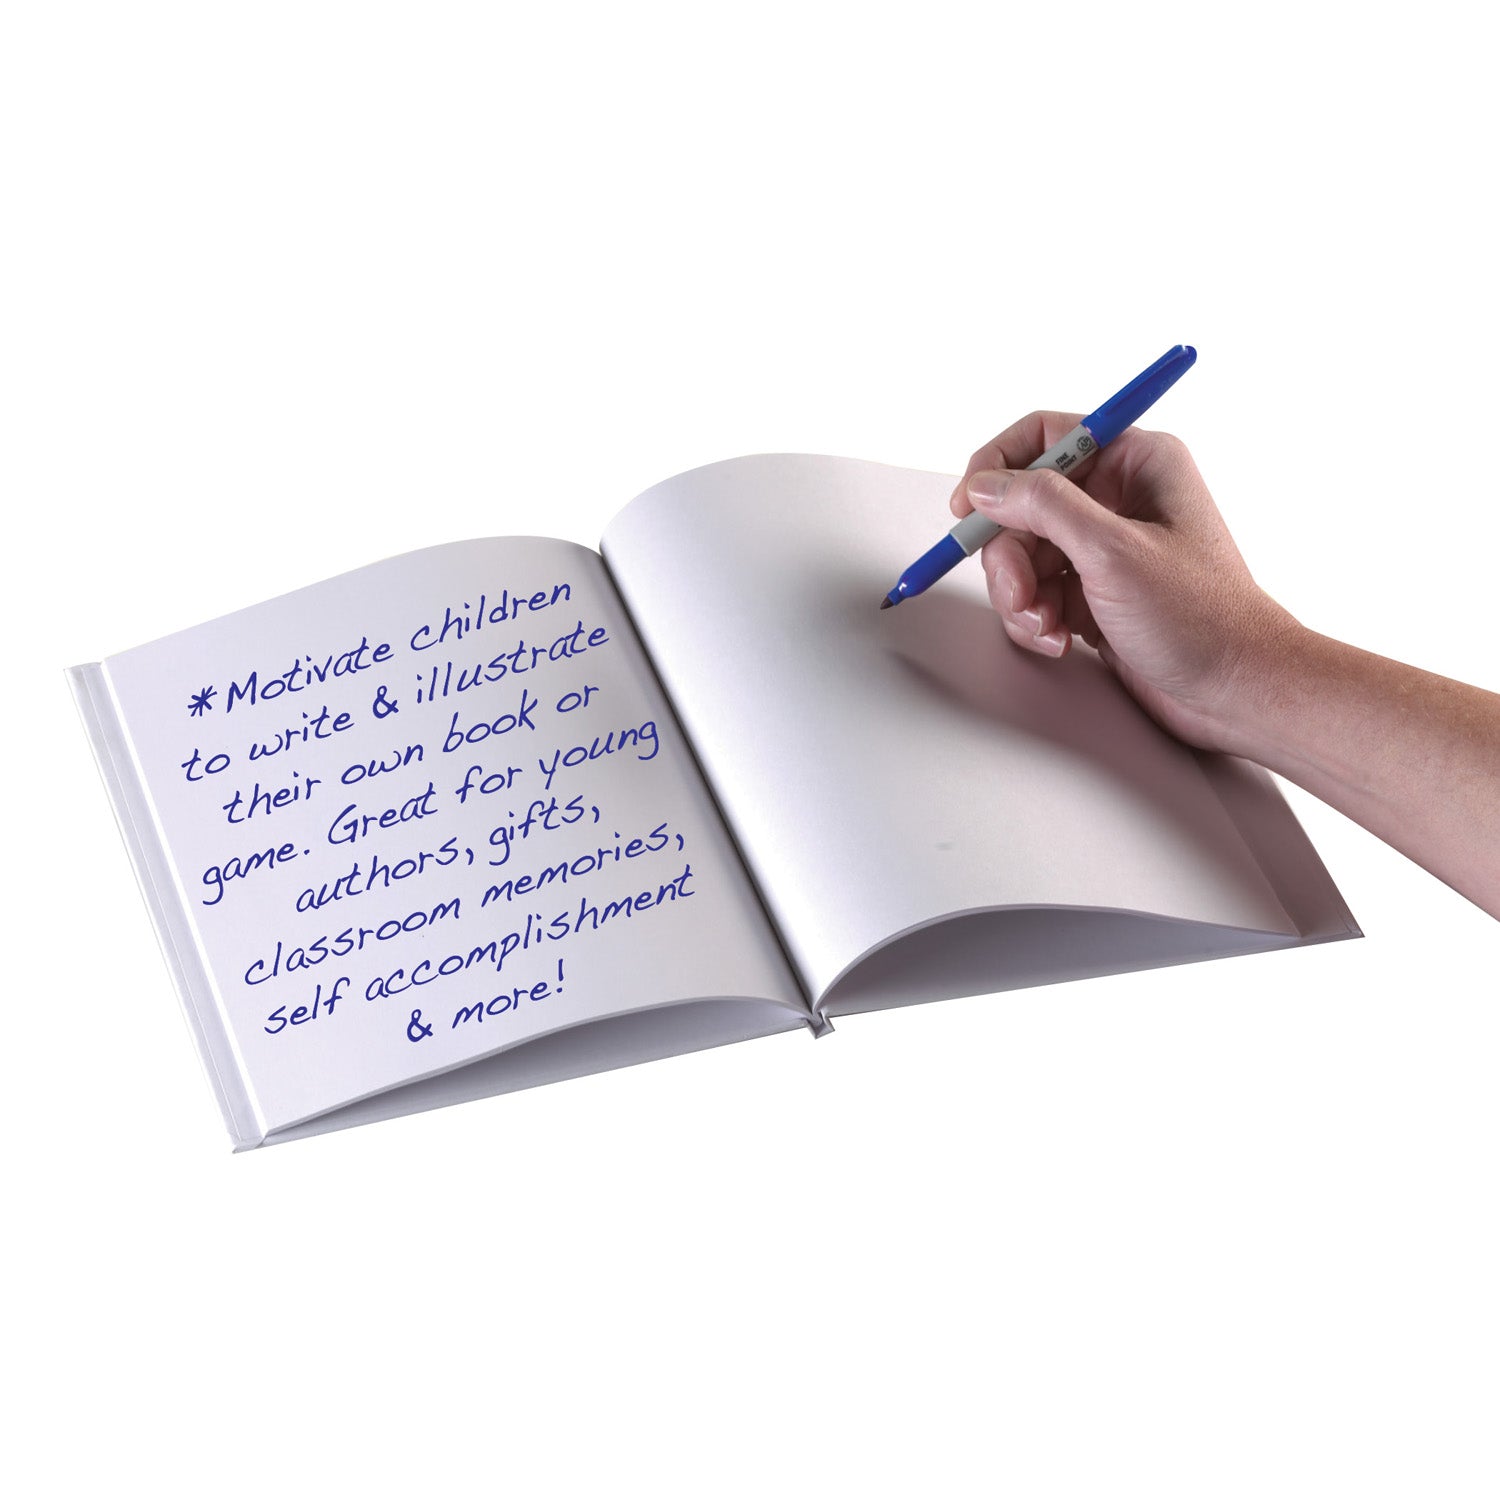 *Motivate children
to write & illustrate
their own book or
game. Great for young
authors, gifts,
classroom memories,
self accomplishment
& more!
FINE
POINT
AP